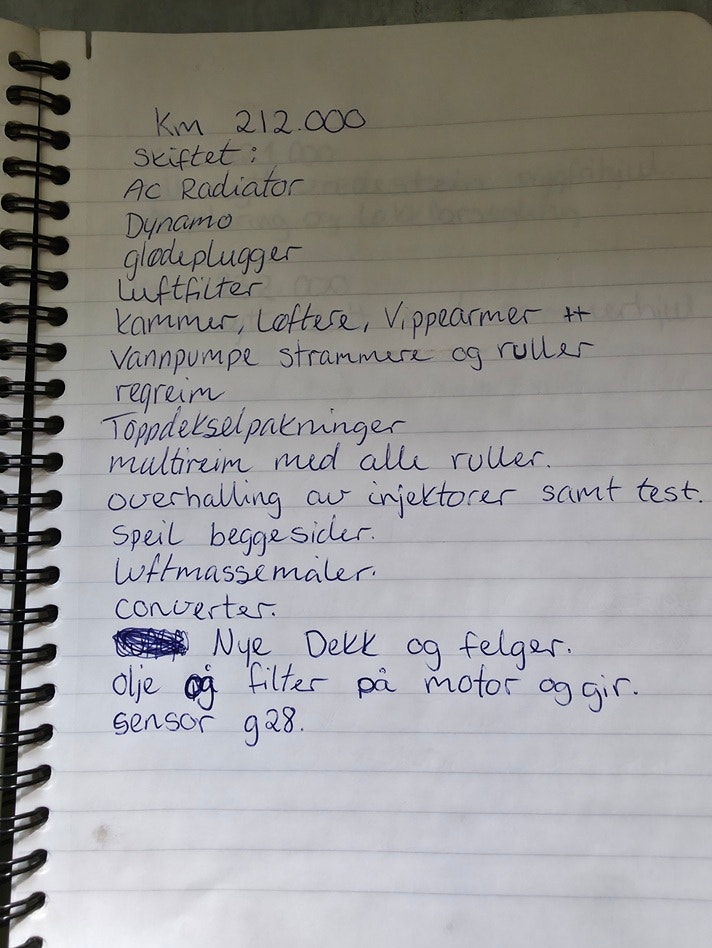 Km 212.000
Skiftet :
AC Radiator
Dynamo
glødeplugger
Luftfilter
kammer, Løftere, Vippearmer ++
Vannpumpe strammere og ruller
regreim
Toppdekselpakninger
multireim med alle ruller.
overhalling av injektorer samt test.
Speil begge sider.
luftmassemåler.
converter.
Nye Dekk og felger.
Olje og filter på motor og gir.
sensor g28.